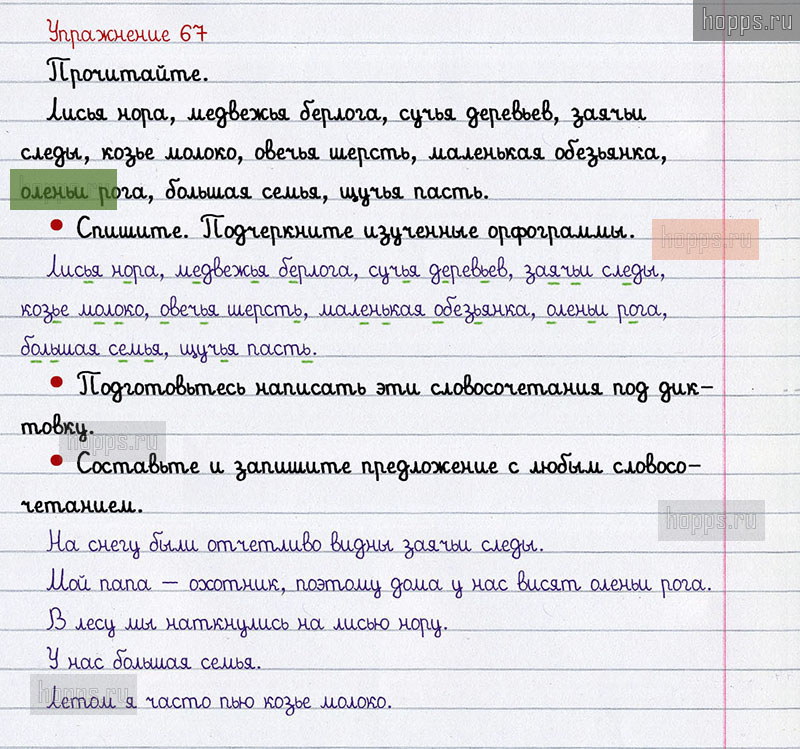 hopps.ru
Упражнение 67
Прочитайте.
Лисья нора, медвежья берлога, сучья деревьев, заячьи
следы, козье молоко, овечья шерсть, маленькая обезьянка,
оленьи рога, большая семья, щучья пасть.
• Спишите. Подчеркните изученные орфограммы.
hopps.ru
Лисья нора, медвежья берлога, сучья деревьев, заячьи следы,
козье молоко, овечья шерсть, маленькая обезьянка, оленьи рога,
большая семья, щучья пасть.
• Подготовьтесь написать эти словосочетания под дик–
товку.
hopps.ru
• Составьте и запишите предложение с любым словосо–
четанием.
hopps.ru
На снегу были отчетливо видны заячьи следы.
Мой папа – охотник, поэтому дома у нас висят оленьи рога.
В лесу мы наткнулись на лисью нору.
У нас большая семья.
hopps.ru
Летом я часто пью козье молоко.